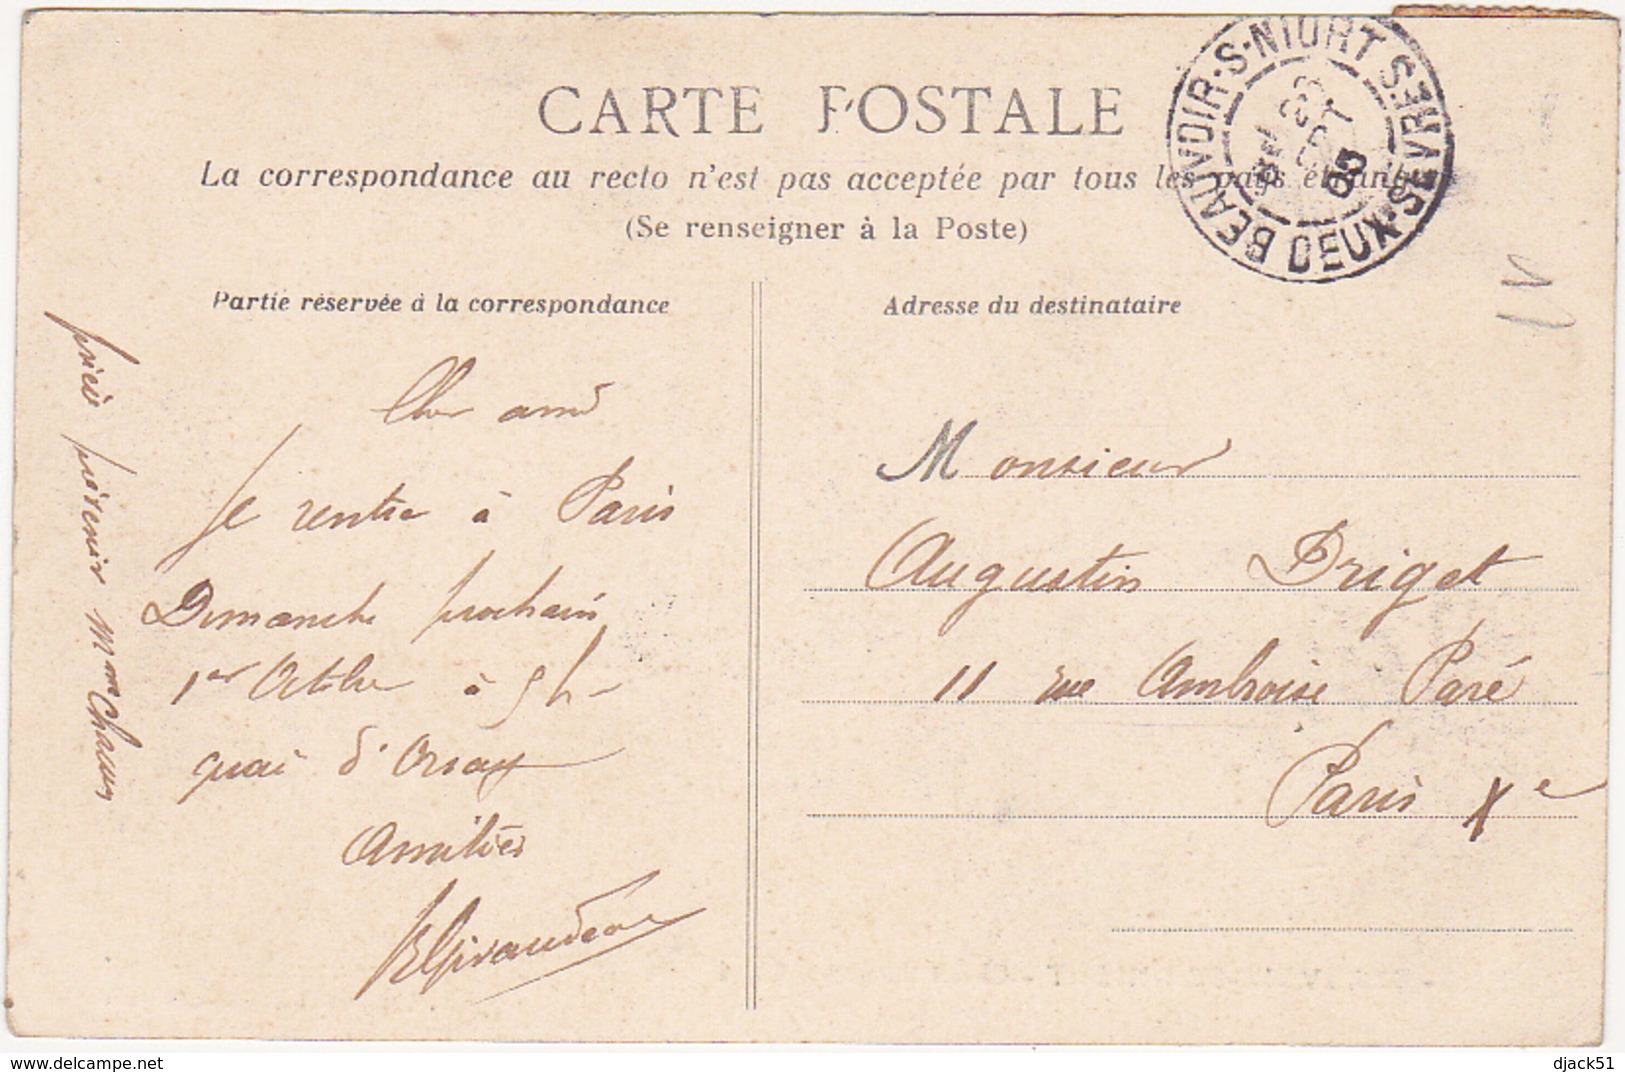 CARTE POSTALE
La correspondance au recto n'est pas acceptée par tous les pays étrang
(Se renseigner à la Poste)
BEAUVOIR-S-NIORT
DEUX-SEVRES
SEPT
05
Partie réservée à la correspondance
Cher ami
Je rentre à Paris
Dimanche prochain
1er Octobre à 5h-
quai d'Orsay
Amitiés
Giraudeau
prière prévenir Mme
Adresse du destinataire
Monsieur
Augustin Driget
11 rue Ambroise Paré
Paris Xe
delcampe.net
djack51